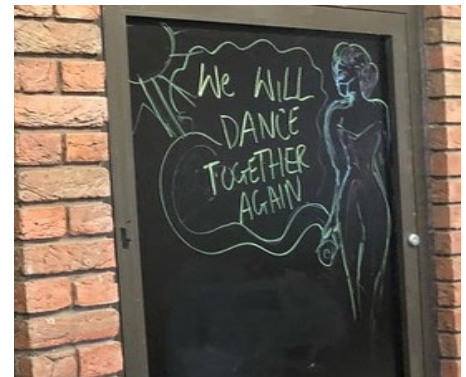 We WiLL
DANCE
TOGETHER
AGAIN